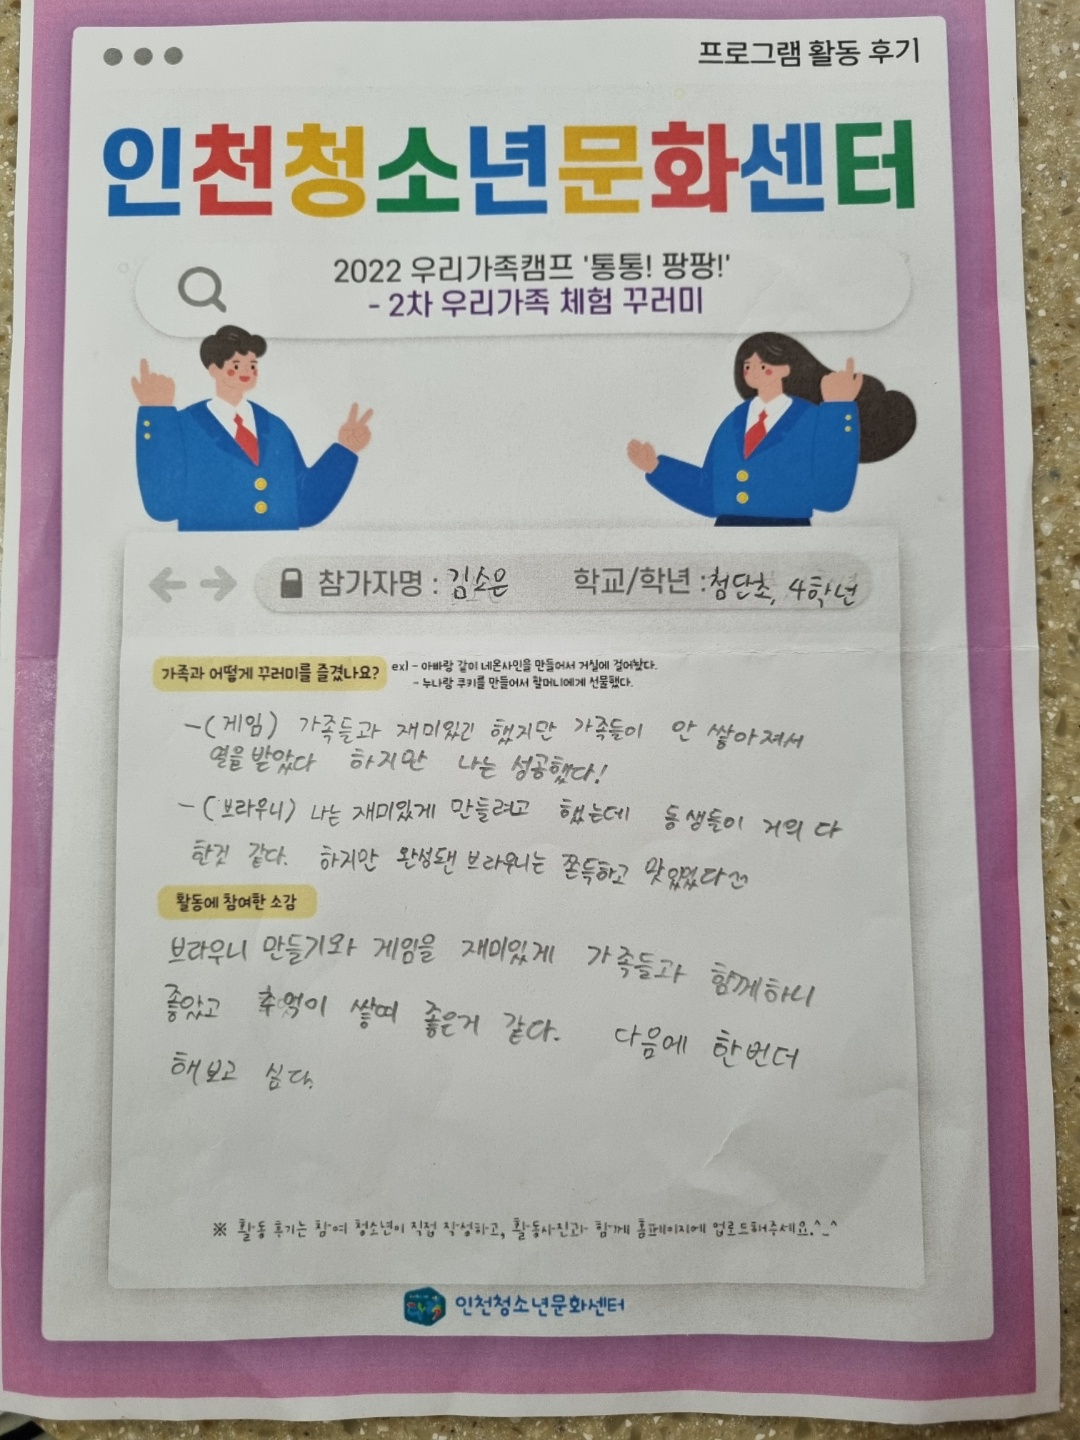 프로그램 활동 후기
인천청소년문화센터
2022 우리가족캠프 '통통! 팡팡!'
- 2차 우리가족 체험 꾸러미
참가자명 : 김소은 학교/학년 : 첨단초, 4학년
가족과 어떻게 꾸러미를 즐겼나요? ex) - 아빠랑 같이 네온사인을 만들어서 거실에 걸어놨다.
- 누나랑 쿠키를 만들어서 할머니에게 선물했다.
-(게임) 가족들과 재미있긴 했지만 가족들이 안 쌓아져서
열을 받았다 하지만 나는 성공했다!
-(브라우니) 나는 재미있게 만들려고 했는데 동생들이 거의 다
한것 같다. 하지만 완성됀 브라우니는 쫀득하고 맛있었다
활동에 참여한 소감
브라우니 만들기와 게임을 재미있게 가족들과 함께하니
좋았고 추억이 쌓여 좋은거 같다. 다음에 한번더
해보고 싶다.
※ 활동 후기는 참여 청소년이 직접 작성하고, 활동사진과 함께 홈페이지에 업로드해주세요.^_^
인천청소년문화센터